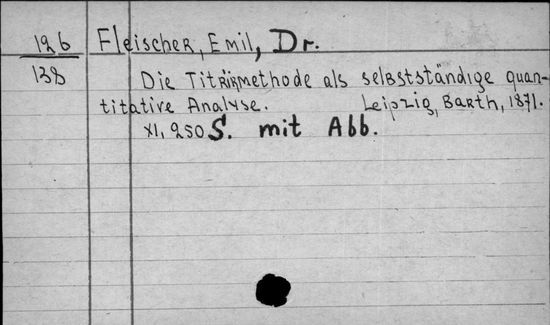 126 Fleischer, Emil, Dr.
138 Die Titrirmethode als selbstständige quan-
titative Analyse. Leipzig, Barth, 1871.
XI, 250 S. mit Abb.